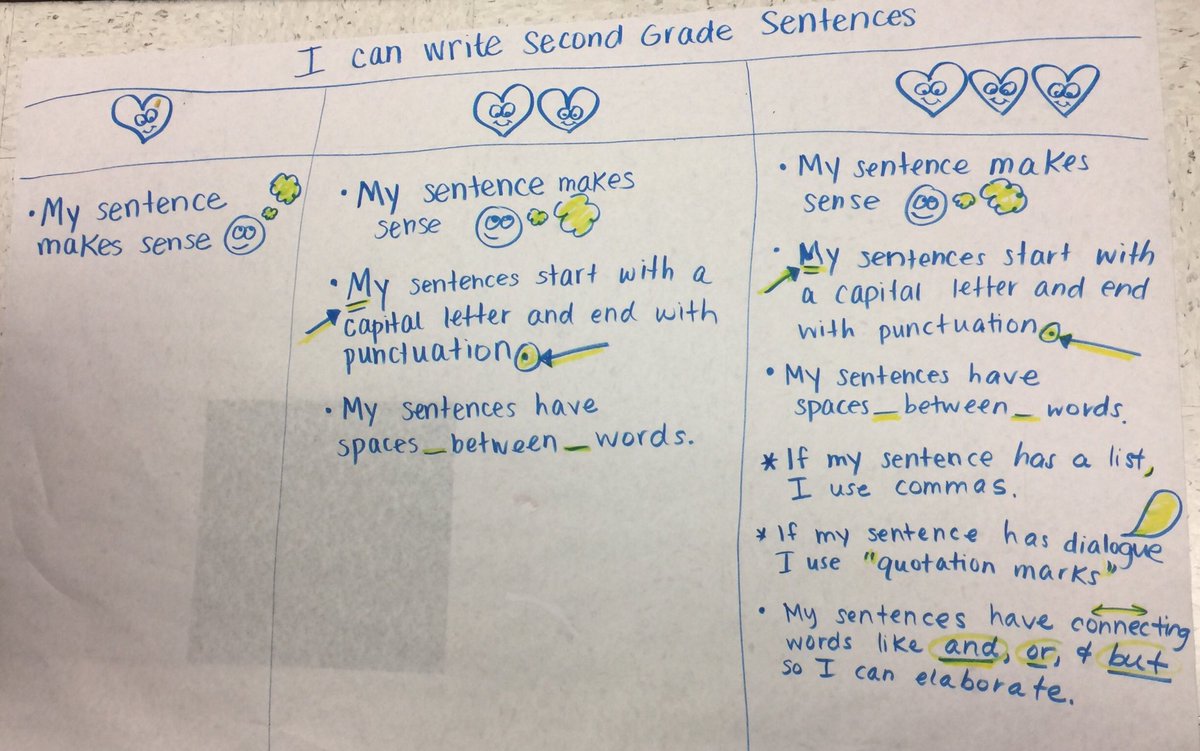 I can write Second Grade Sentences
• My sentence
makes sense
• My sentence makes
sense
• My sentences start with a
capital letter and end with
punctuation.
• My sentences have
spaces_between_words.
• My sentence makes
sense
• My sentences start with
a capital letter and end
with punctuation.
• My sentences have
spaces_between_words.
* If my sentence has a list,
I use commas.
* If my sentence has dialogue
I use "quotation marks"
• My sentences have connecting
words like and, or, & but
so I can elaborate.